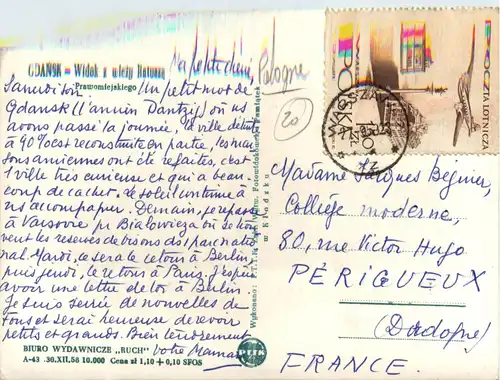 GDAŃSK = Widok z wieży Ratusza
Prawomiejskiego
Pologne
20
Samedi soir, Un petit mot de
Gdansk (l'ancien Dantzig) où ns
avons passé la journée, la ville détruite
à 90% est reconstruite en partie, les mai
sons anciennes ont été refaites, c'est
1 ville très curieuse et qui a beau
coup de cachet. Le soleil continue à
ns accompagner. Demain, je repasse
à Varsovie pr Bialowieza où se trou
vent les réserves de bisons ds 1 parc natio
nal. Mardi, ce sera le retour à Berlin,
puis jeudi, le retour à Paris. J'espère
avoir une lettre de toi à Berlin.
Je suis de nouvelles de
tous et serai heureuse de revoir
petits et grands. Bien tendrement
votre Maman
BIURO WYDAWNICZE „RUCH"
A-43 .30.XII.58 10.000 Cena zł 1,10 + 0,10 SFOS
w Kłodzku
POCZTA LOTNICZA
POLSKA
WARSZAWA
Madame Jacques Béguier,
Collège moderne,
80, rue Victor Hugo
PÉRIGUEUX
(Dordogne)
FRANCE.